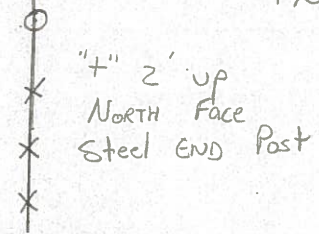 "+" 2' up
North Face
Steel END Post